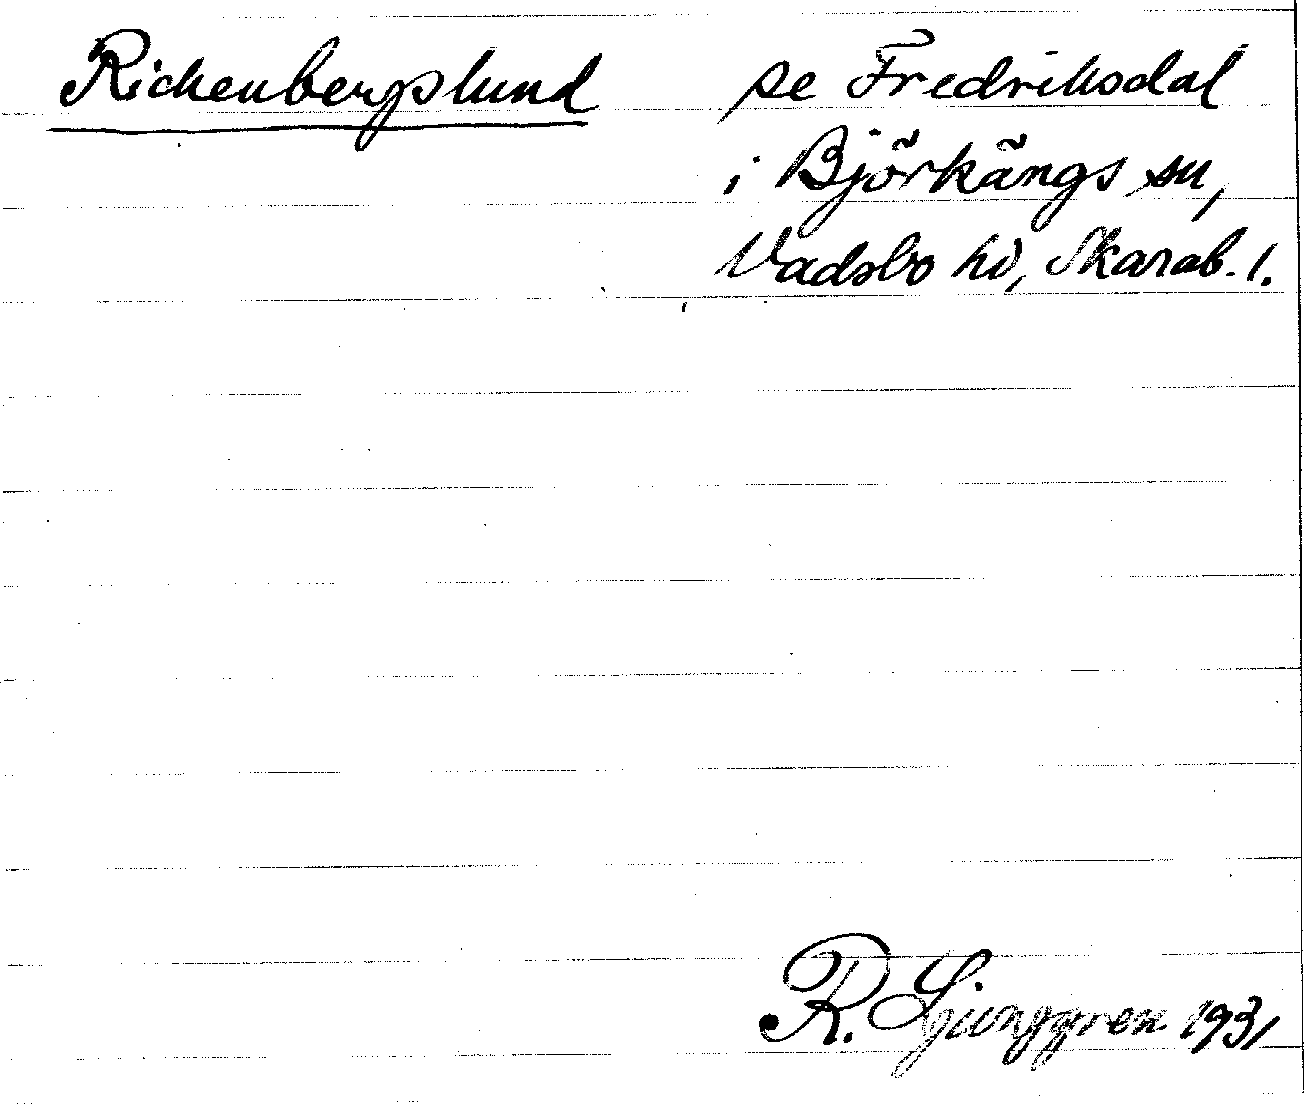 Rickenbergslund se Fredriksdal
i Björkängs sn,
Vadsbo hd, Skarab. l.
R. Ljunggren 1931